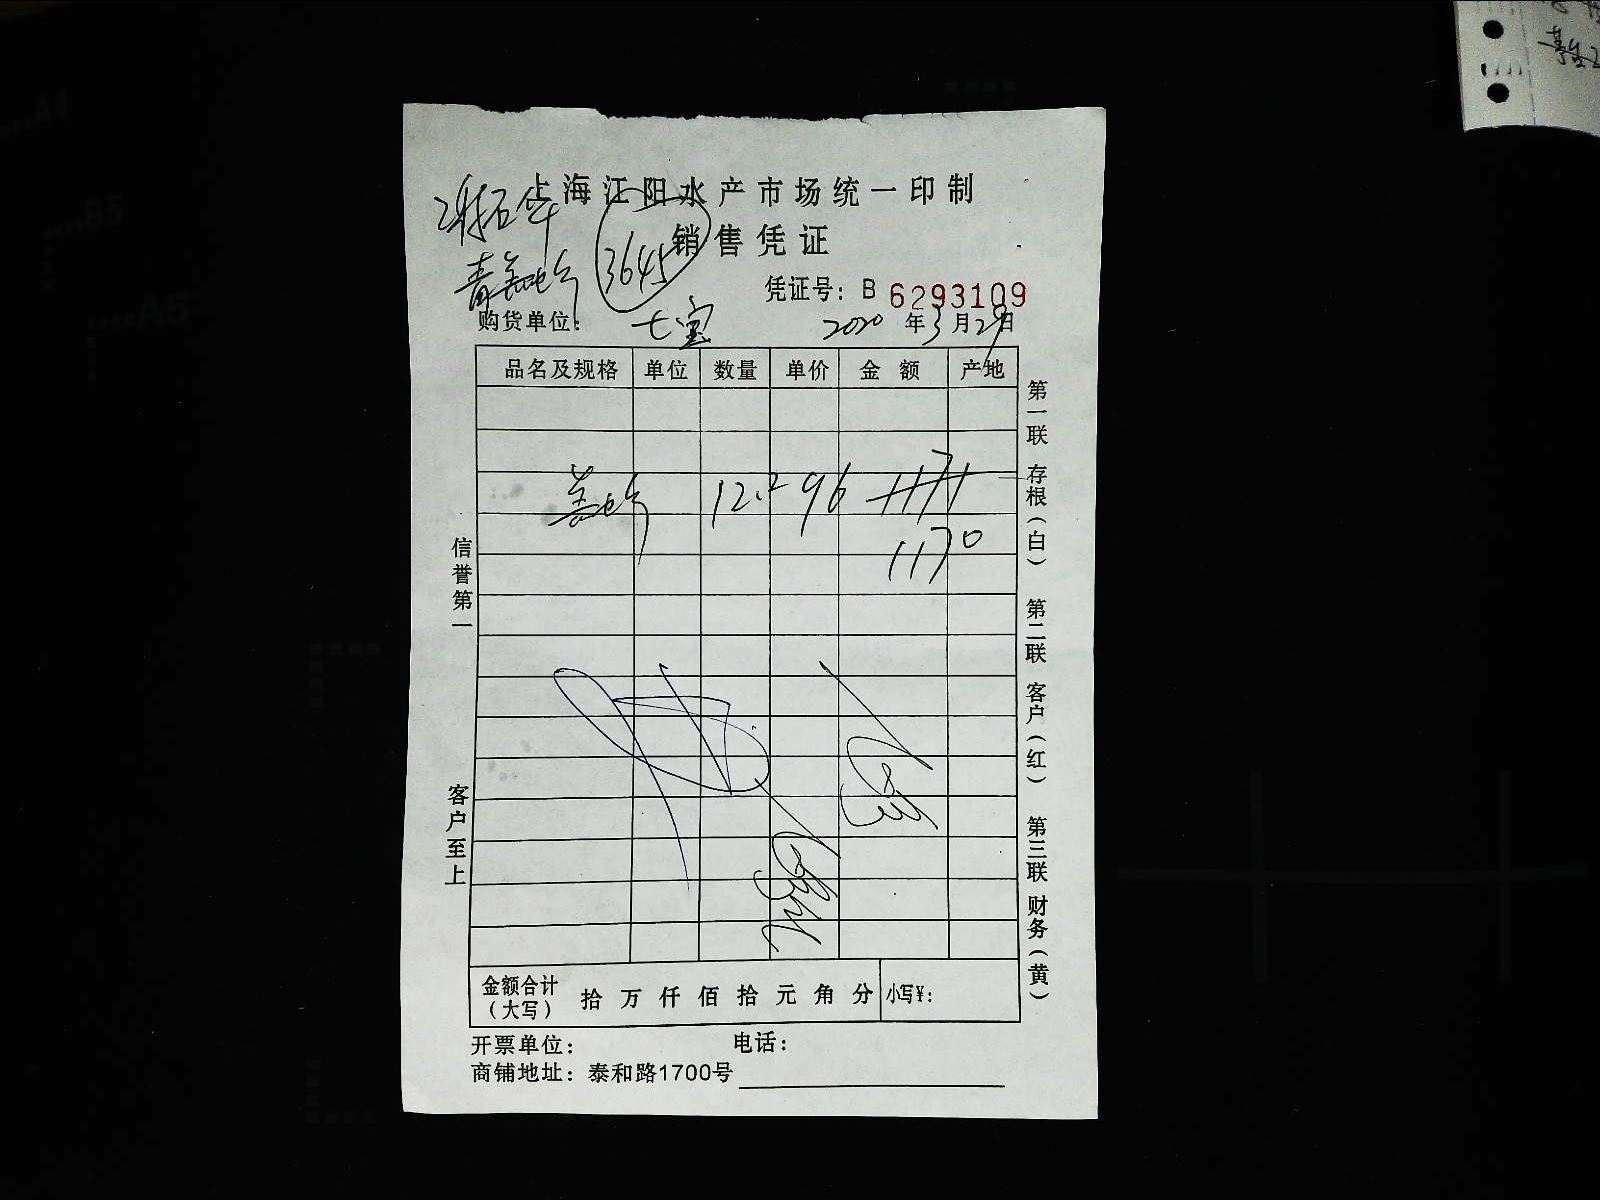 上海江阳水产市场统一印制
销售凭证
3645
凭证号：B 6293109
购货单位： 七宝 2020 年 3 月 29 日
品名及规格 单位 数量 单价 金额 产地
12.2 96 1171
1170
信誉第一
客户至上
第一联 存根（白） 第二联 客户（红） 第三联 财务（黄）
金额合计（大写） 拾 万 仟 佰 拾 元 角 分 小写¥：
开票单位： 电话：
商铺地址：泰和路1700号